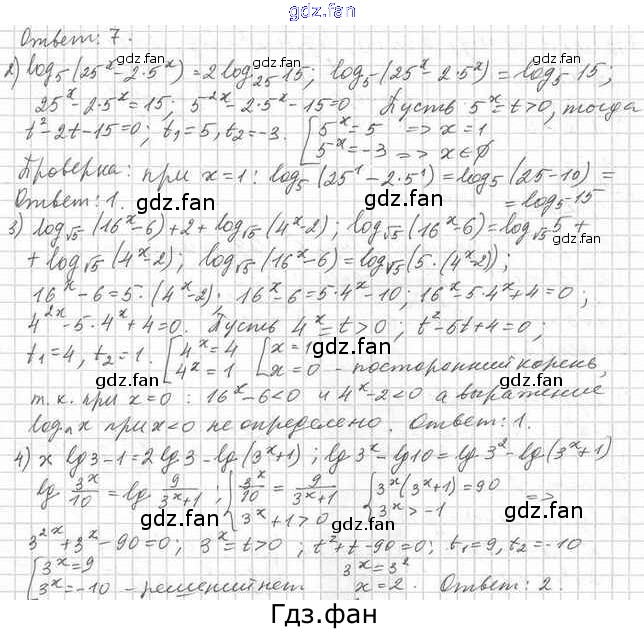 gdz.fan
Ответ: 7.
2) log₅(25ˣ-2·5ˣ) = 2log₂₅15; log₅(25ˣ-2·5ˣ) = log₅15;
25ˣ-2·5ˣ=15; 5²ˣ-2·5ˣ-15=0 Пусть 5ˣ=t>0, тогда
t²-2t-15=0; t₁=5, t₂=-3. [5ˣ=5 => x=1
5ˣ=-3 => x∈∅
Проверка: при x=1: log₅(25¹-2·5¹)=log₅(25-10)=
Ответ: 1. =log₅15
3) log√5(16ˣ-6)+2+log√5(4ˣ-2); log√5(16ˣ-6)=log√5 5+
+log√5(4ˣ-2); log√5(16ˣ-6)=log√5(5·(4ˣ-2));
16ˣ-6=5·(4ˣ-2); 16ˣ-6=5·4ˣ-10; 16ˣ-5·4ˣ+4=0;
4²ˣ-5·4ˣ+4=0. Пусть 4ˣ=t>0; t²-5t+4=0;
t₁=4, t₂=1. [4ˣ=4 [x=1
4ˣ=1 x=0 - посторонний корень,
т.к. при x=0: 16ˣ-6<0 и 4ˣ-2<0 а выражение
logₙx при x<0 не определено. Ответ: 1.
4) x lg3-1=2lg3-lg(3ˣ+1); lg3ˣ-lg10=lg3²-lg(3ˣ+1)
lg 3ˣ/10 = lg 9/(3ˣ+1); {3ˣ/10 = 9/(3ˣ+1) {3ˣ(3ˣ+1)=90 =>
3ˣ+1>0 3ˣ>-1
3²ˣ+3ˣ-90=0; 3ˣ=t>0; t²+t-90=0; t₁=9, t₂=-10
[3ˣ=9 3ˣ=3²
3ˣ=-10 - решений нет x=2. Ответ: 2.
gdz.fan gdz.fan gdz.fan
gdz.fan gdz.fan gdz.fan
gdz.fan gdz.fan gdz.fan
gdz.fan gdz.fan gdz.fan
gdz.fan gdz.fan gdz.fan
Гдз.фан